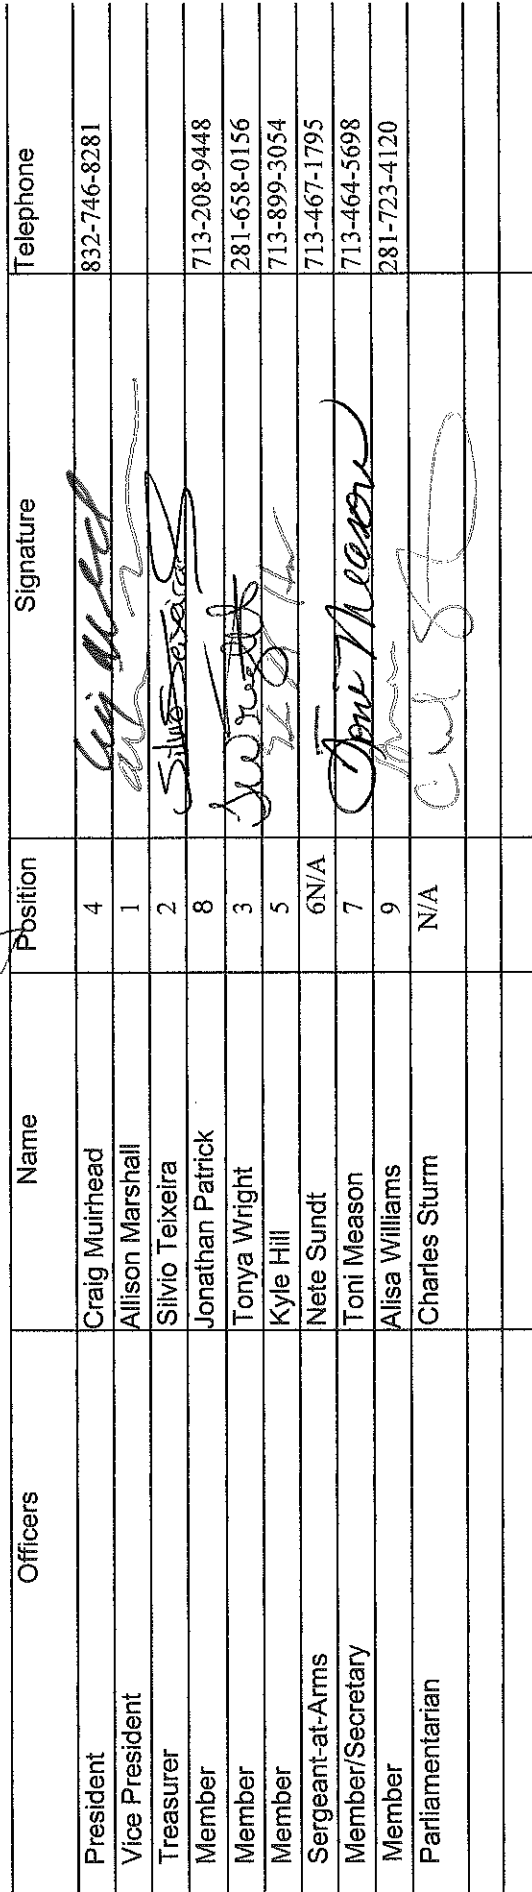 Officers Name Position Signature Telephone
President Craig Muirhead 4 832-746-8281
Vice President Allison Marshall 1
Treasurer Silvio Teixeira 2 Silvio Teixeira
Member Jonathan Patrick 8 713-208-9448
Member Tonya Wright 3 TWright 281-658-0156
Member Kyle Hill 5 713-899-3054
Sergeant-at-Arms Nete Sundt 6N/A 713-467-1795
Member/Secretary Toni Meason 7 Toni Meason 713-464-5698
Member Alisa Williams 9 281-723-4120
Parliamentarian Charles Sturm N/A